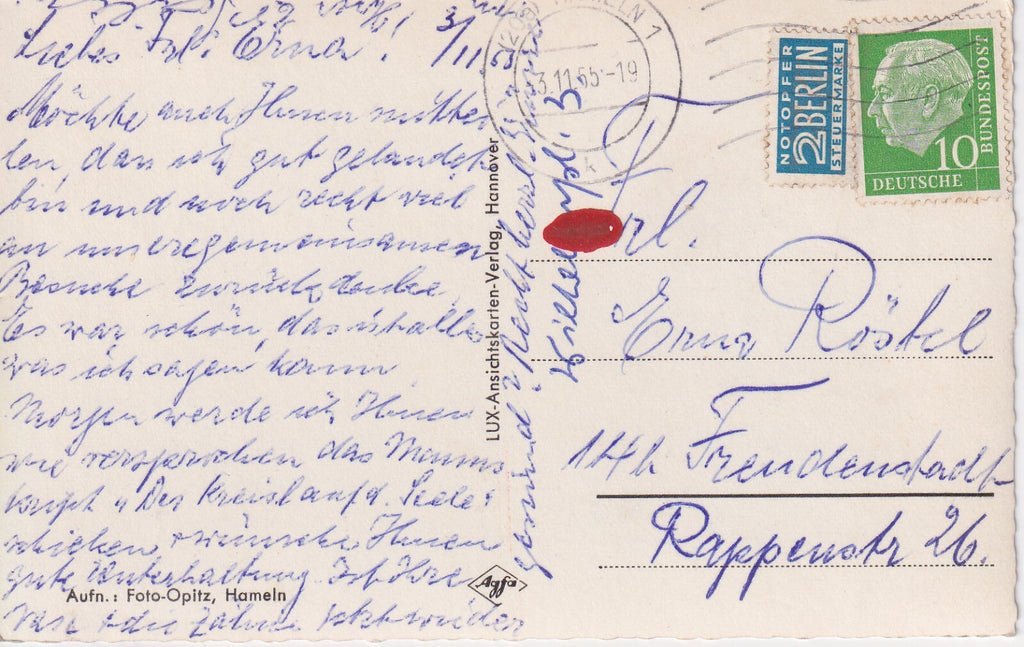 3/11 55
Liebes Frl. Erna!
Möchte auch Ihnen mittei-
len, dass ich gut gelandet
bin und noch recht viel
an unsere gemeinsamen
Besuche zurückdenke.
Es war schön, das ist alles
was ich sagen kann.
Morgen werde ich Ihnen
wie versprochen das Manus
kript "Der Kreislauf d. Seele"
schicken + wünsche Ihnen
gute Unterhaltung. Ist Ihre
Nase + die Zähne jetzt wieder
gesund? Recht herzl.
Aufn.: Foto-Opitz, Hameln
Agfa
LUX-Ansichtskarten-Verlag, Hannover
HAMELN 1
3.11.55-19
k
NOTOPFER
2 BERLIN
STEUERMARKE
10
DEUTSCHE
BUNDESPOST
Frl.
Erna Röstel
14b Freudenstadt
Rappenstr 26.